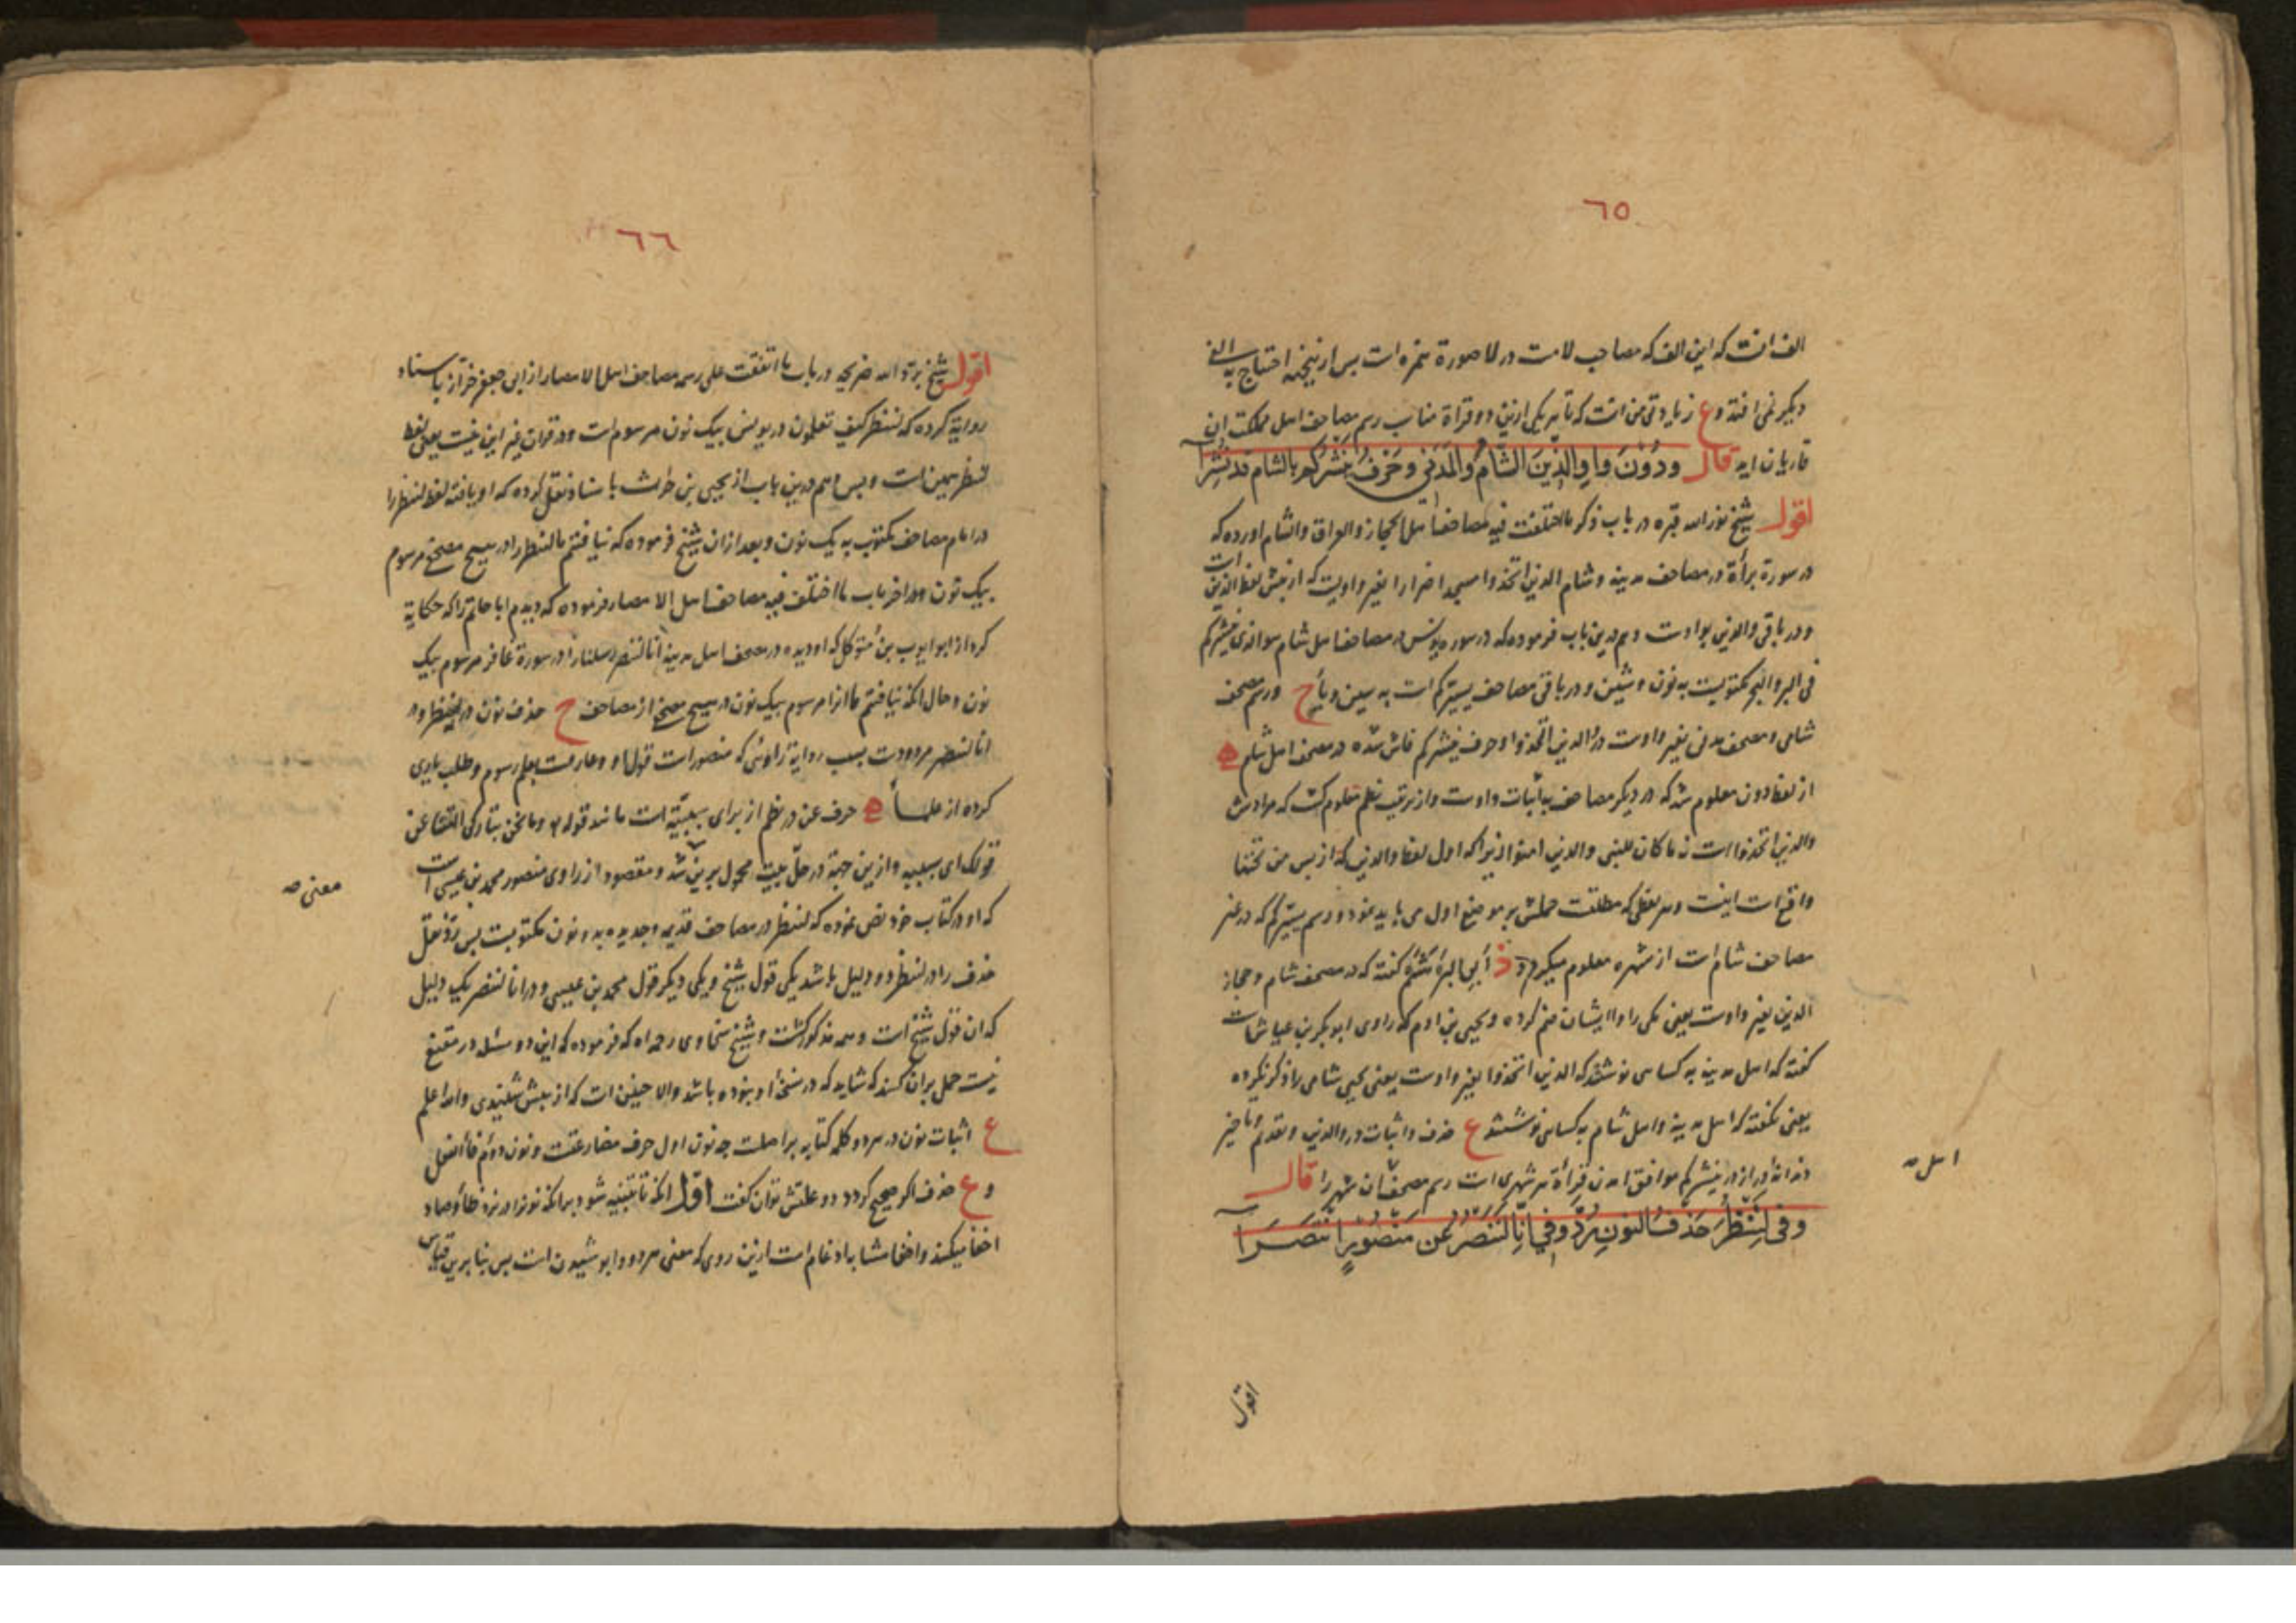 ٦٥
الف انست که این الف که مصاحب لامت در لا صورة همزه است پس ازینجهة احتیاج به الفی
دیکر نمی افتد و ع زیادتی من انست که تا هر یکی ازین دو قراة مناسب رسم مصاحف اهل مملکت ان
قاریان اید قال ودُوْنَ واوِ الذِینَ الشَّامُ والمَدَنی وحَرْفُ یَنْشُرُکم بالشام قد نُشِرَا
اقول شیخ نور الله قبره در باب ذکر ما اختلفت فیه مصاحف اهل الحجاز والعراق والشام اورده که
در سورة براة در مصاحف مدینه وشام الذین اتخذوا مسجدا ضرارا بغیر واویست که از پیش لفظ الذین است
ودر باقی والذین بواوست وهم درین باب فرموده که در سوره یونس در مصاحف اهل شام هو الذی ینشرکم
فی البر والبحر مکتوبست به نون وشین ودر باقی مصاحف یسیرکم است به سین ویا ح ورسم مصحف
شامی ومصحف مدنی بغیر واوست در الذین اتخذوا وحرف ینشرکم فاش شده در مصحف اهل شام
از لفظ دون معلوم شد که در دیکر مصاحف به اثبات واوست واز ترتیب نظم معلوم کشت که مرادش
والذین اتخذوا است نه ما کان للنبی والذین امنوا زیرا که اول لفظ والذین که از پس من تحتها
واقع است اینست وهر لفظی که مطلقست حملش بر موضع اول می باید نمود ورسم یسیرکم که در غیر
مصاحف شام است از شهره معلوم میکردد ابی البرهشم کفته که در مصحف شام وحجاز
الذین بغیر واوست یعنی مکی را وا ایشان ضم کرده ویحیی بن ادم که راوی ابو بکر بن عیاش است
کفته که اهل مدینه به کسامی نوشتند که الذین اتخذوا بغیر واوست یعنی یحیی شامی را ذکر نکرده
یعنی نکفته که اهل مدینه واهل شام به کسامی نوشتند ع حذف واثبات در والذین وتقدیم وتاخیر
دندانهٔ دراز در ینشرکم موافق امدن قراة هر شهری است رسم مصحف ان شهر را قال
وفی لِنَنْظُرَ حَذفُ النونِ رُدَّ وفی اِنّا لَنَنْصُرُ عَن مَنْصُورٍ انْتَصَرَا
اقول
اهل صه
٦٦
اقول شیخ برد الله ضریحه در باب ما اتفقت علی رسمه مصاحف اهل الامصار از ابی جعفر خزاز باسناد
روایة کرده که لننظر کیف تعملون در یونس بیک نون مرسوم است ودر قران غیر این نیست یعنی لفظ
لننظر همین است وبس وهم درین باب از یحیی بن حارث باسناد نقل کرده که او یافته لفظ لننظر را
در امام مصاحف مکتوب به یک نون وبعد ازان شیخ فرموده که نیافتم ما لننظر را در هیچ مصحفی مرسوم
بیک نون ودر اخر باب ما اختلف فیه مصاحف اهل الامصار فرموده که دیدم ابا حاتم را که حکایة
کرد از ابو ایوب بن متوکل که او دیده در مصحف اهل مدینه انا لننصر رسلنا را در سورة غافر مرسوم بیک
نون وحال انکه نیافتم ما انرا مرسوم بیک نون در هیچ مصحفی از مصاحف ح حذف نون در لننظر ودر
انا لننصر مردودست بسبب روایة راوئی که منصورست قول او وعارفست بعلم رسوم وطلب یاری
کرده از علما حرف عن در نظم از برای سببیّة است مانند قوله تع وما نحن بتارکی الهتنا عن
قولک ای بسببه وازین جهة در حلّ بیت محمول برین شد ومقصود از راوی منصور محمد بن عیسی است
که او در کتاب خود نص نموده که لننظر در مصاحف قدیمه وجدیده بدو نون مکتوبست پس ردّ نقل
حذف را در لننظر دو دلیل باشد یکی قول شیخ ویکی دیکر قول محمد بن عیسی ودر انا لننصر یک دلیل
که ان قول شیخ است وهمه مذکور کشت وشیخ سخاوی رحمه الله که فرموده که این دو مسئله در مقنع
نیست حمل بران کنند که شاید که در نسخهٔ او نبوده باشد والا چنین است که از پیش شنیدی والله اعلم
ع اثبات نون در هر دو کلمه کتابه بر اصلست چه نون اول حرف مضارعتست ونون دوم فاء الفعل
و ع حذف اکر صحیح کردد دو علتش توان کفت اول انکه تا تنبیه شود بر انکه نونرا در نزد ظا وصاد
اخفا میکنند واخفا مشابه ادغام است ازین روی که معنی هر دو وا پوشیدن است پس بنا برین قیاس
معنی صه